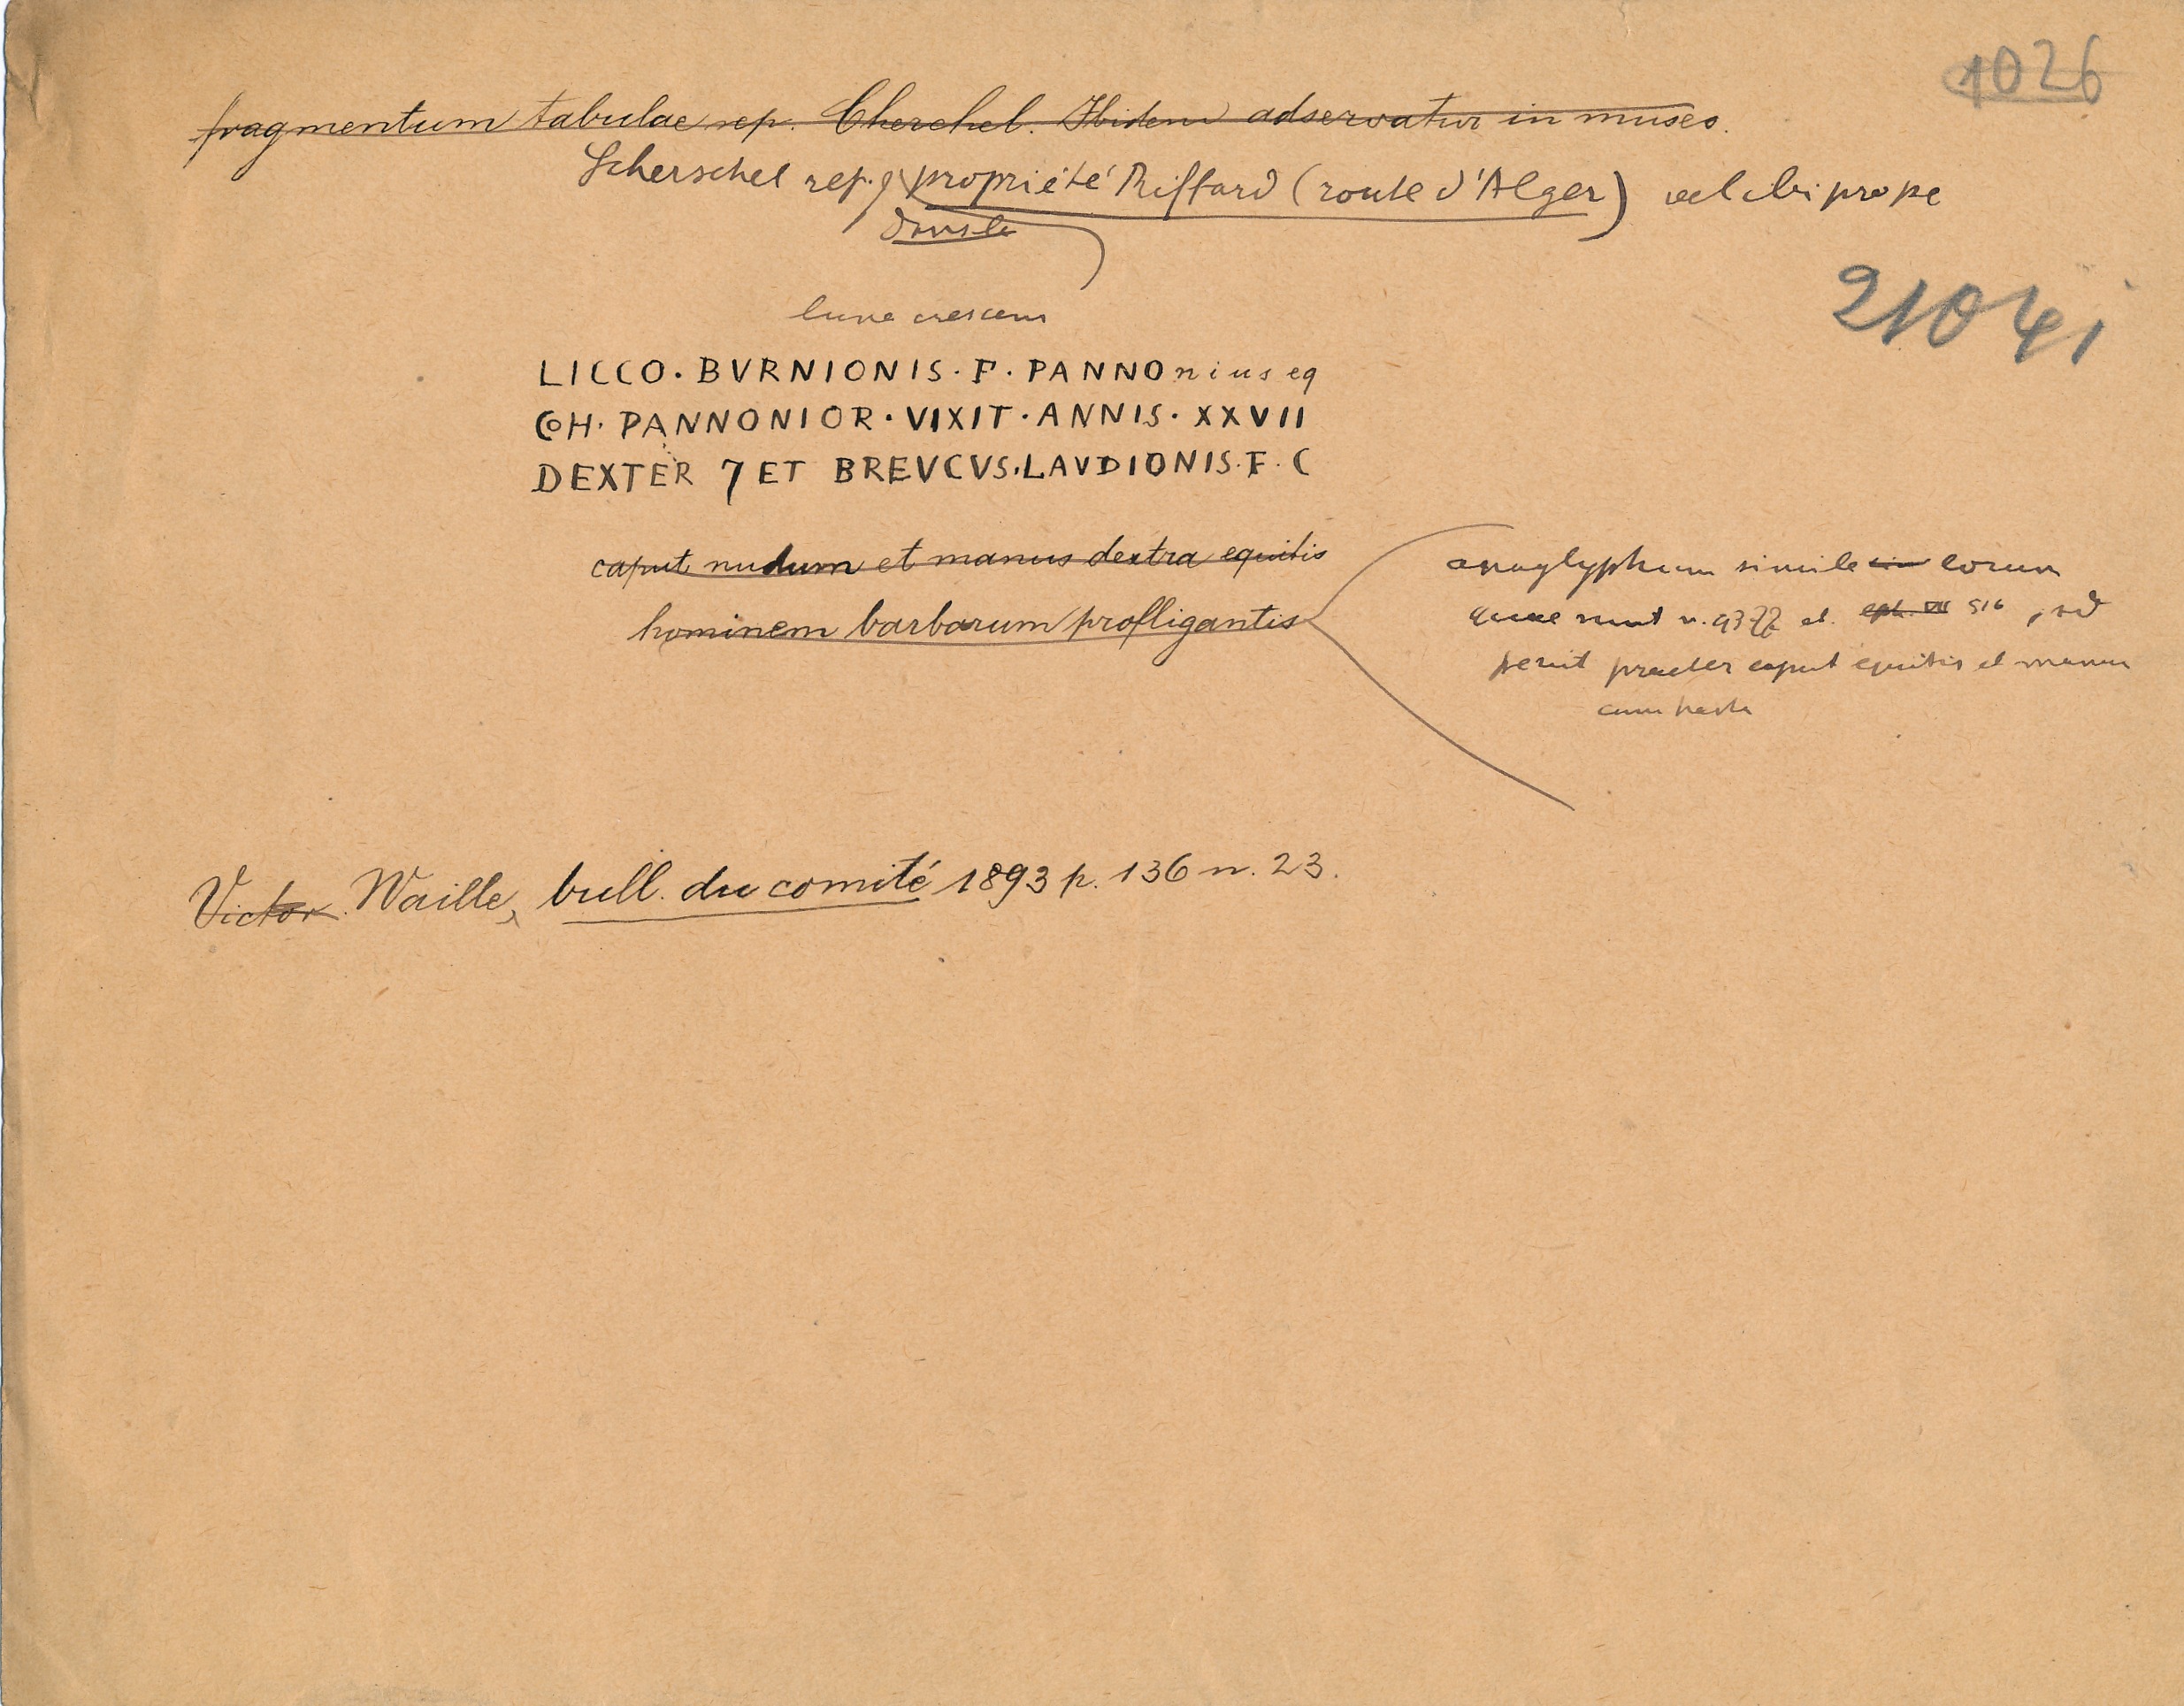 1026
fragmentum tabulae rep. Cherchel. Ibidem adservatur in museo.
Scherschel rep. propriété Riffard (route d'Alger) vel ibi prope
dans la
21041
luna crescens
LICCO · BVRNIONIS · F · PANNOnius eq
COH · PANNONIOR · VIXIT · ANNIS · XXVII
DEXTER 7 ET BREVCVS · LAVDIONIS · F · C
caput nudum et manus dextra equitis
hominem barbarum profligantis
anaglyphum simile eorum
quae sunt n. 9377 et eph. VII 516, sed
periit praeter caput equitis et manum
cum hasta
Victor Waille, bull. du comité 1893 p. 136 n. 23.